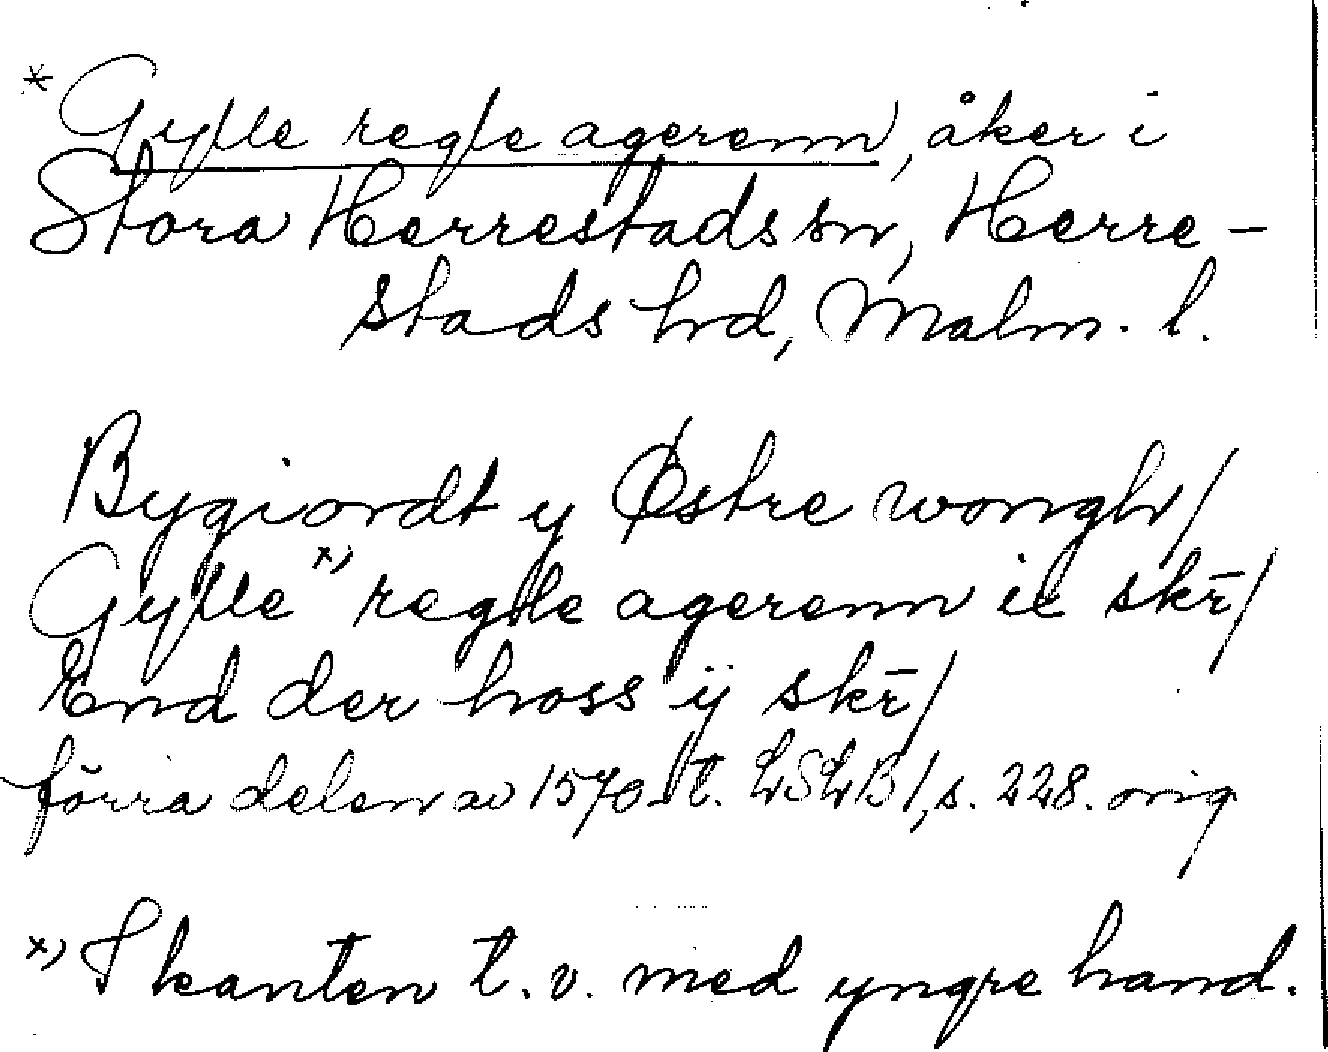 * Gylle regle agerenn, åker i
Stora Herrestads sn, Herre-
stads hd, Malm. l.
Bygiordt y Østre wongh/
Gylle x) regle agerenn ie skr̄/
End der hoss ÿ skr̄/
förra delen av 1570-t. LSLB 1, s. 228. orig
x) I kanten t. v. med yngre hand.